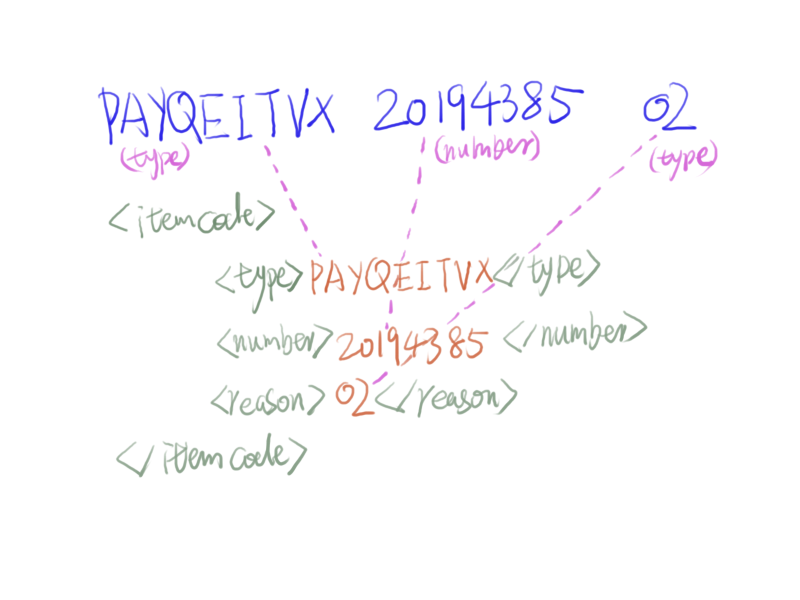 PAYQEITVX 20194385 02
(type) (number) (type)
<itemcode>
<type>PAYQEITVX</type>
<number>20194385 </number>
<reason>02</reason>
</itemcode>